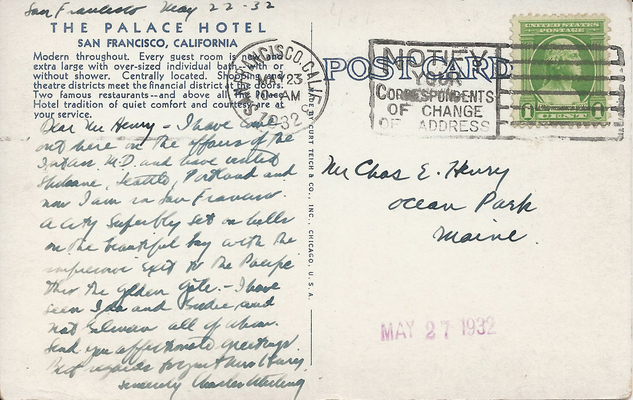 San Francisco May 22-32
THE PALACE HOTEL
SAN FRANCISCO, CALIFORNIA
Modern throughout. Every guest room is new and
extra large with over-sized individual bath with or
without shower. Centrally located. Shopping and
theatre districts meet the financial district at the doors.
Two famous restaurants—and above all the Palace
Hotel tradition of quiet comfort and courtesy are at
your service.
Dear Mr Henry - I have come
out here on the affairs of the
M.D. and have visited
Spokane, Seattle, Portland and
now I am in San Francisco.
A city superbly set on hills
on the beautiful bay with the
impressive exit to the Pacific
thro the Golden Gate. - I have
seen Ida and and
not all of whom
send you affectionate greetings.
Best regards to you & Mrs Henry.
Sincerely Charles
MADE BY CURT TEICH & CO., INC., CHICAGO, U.S.A.
POST CARD
SAN FRANCISCO, CALIF.
MAY 23
10 AM
1932
NOTIFY
YOUR
CORRESPONDENTS
OF CHANGE
OF ADDRESS
UNITED STATES
POSTAGE
1 1
CENT
Mr Chas E. Henry
Ocean Park
Maine.
MAY 27 1932